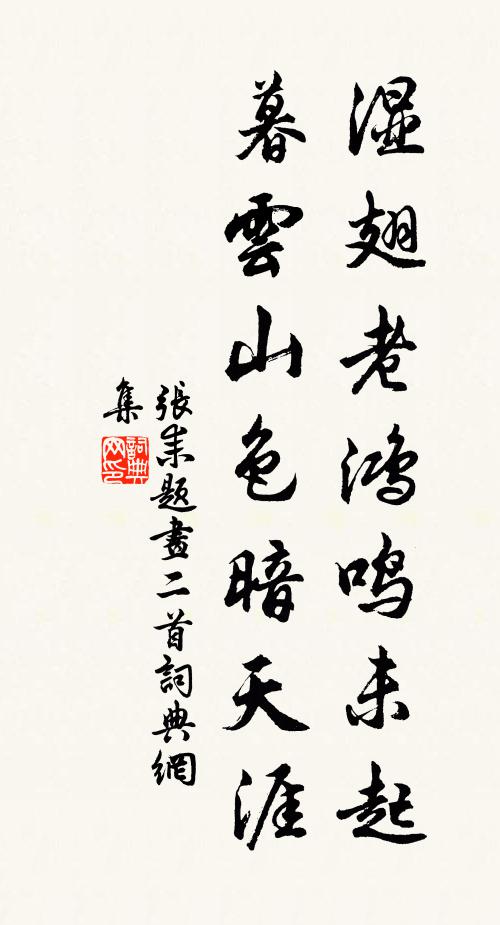 湿翅老鸿鸣未起
暮雲山色暗天涯
張耒题畫二首詞典網
集
詞典网印